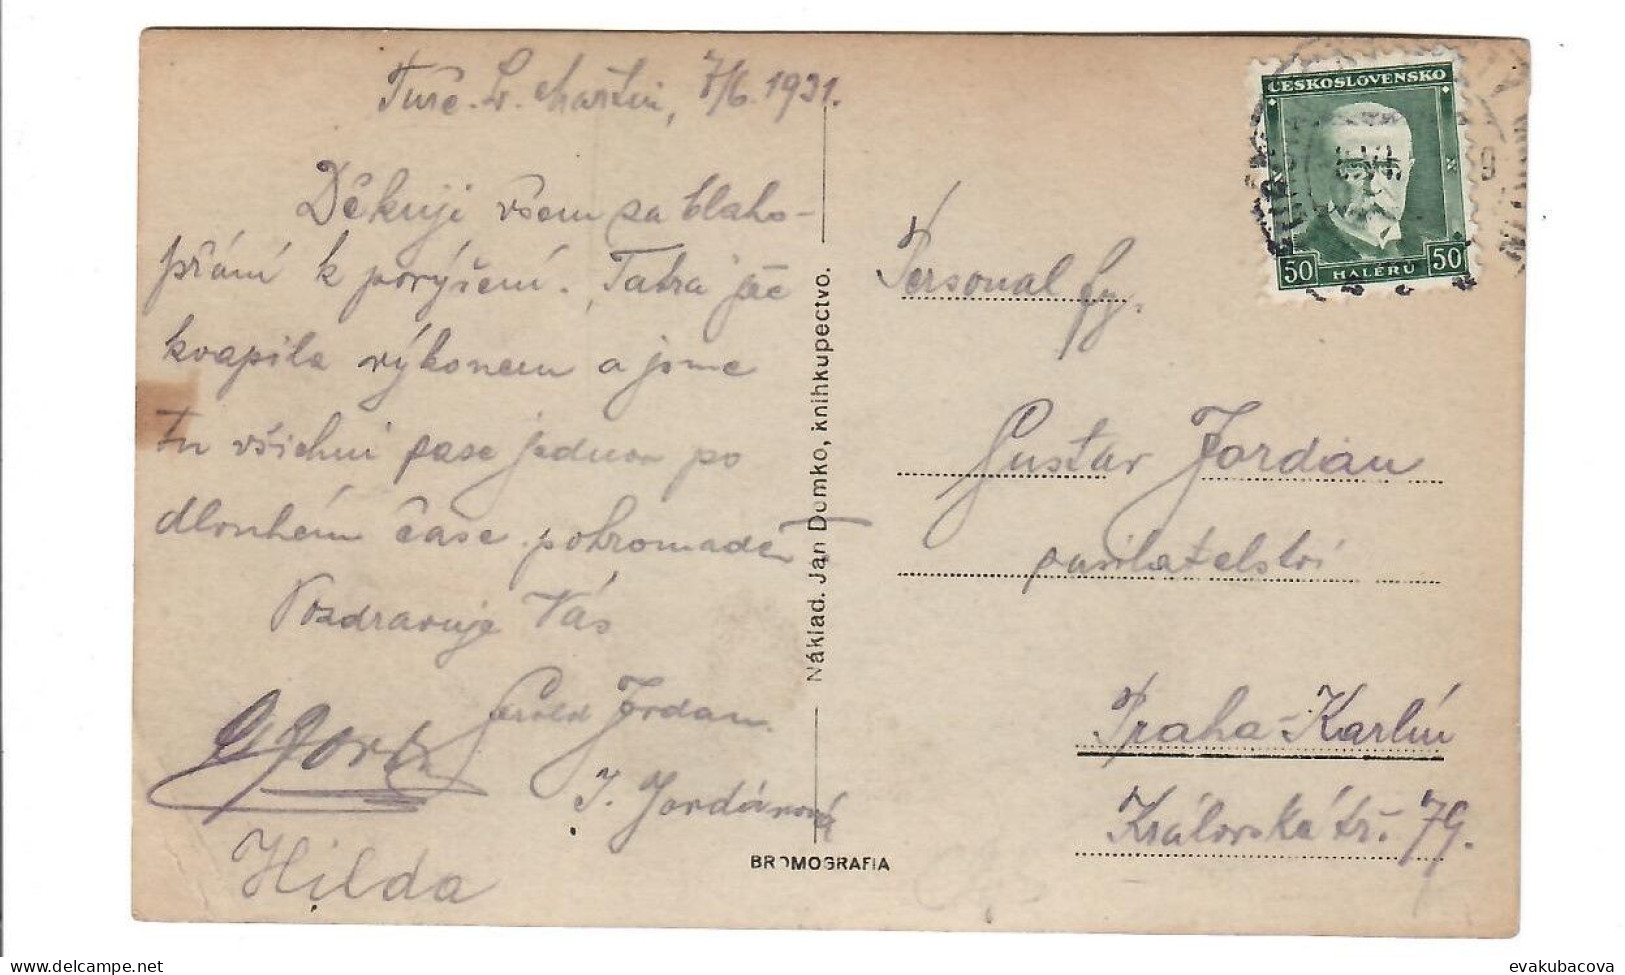 Turč. Sv. Martin, 7/6. 1931.
Děkuji všem za blaho-
přání k povýšení. Tatra je
kvapila výkonem a jsme
tu všichni zase jednou po
dlouhém čase pohromadě
Pozdravuje Vás
Gerold Jordan.
J. Jordánová
Hilda
Náklad. Ján Domko, kníhkupectvo.
BROMOGRAFIA
ČESKOSLOVENSKO
50 HALÉŘŮ 50
Personal fy.
Gustav Jordan
zasilatelství
Praha-Karlín
Královská tř. 79.
evakubacova